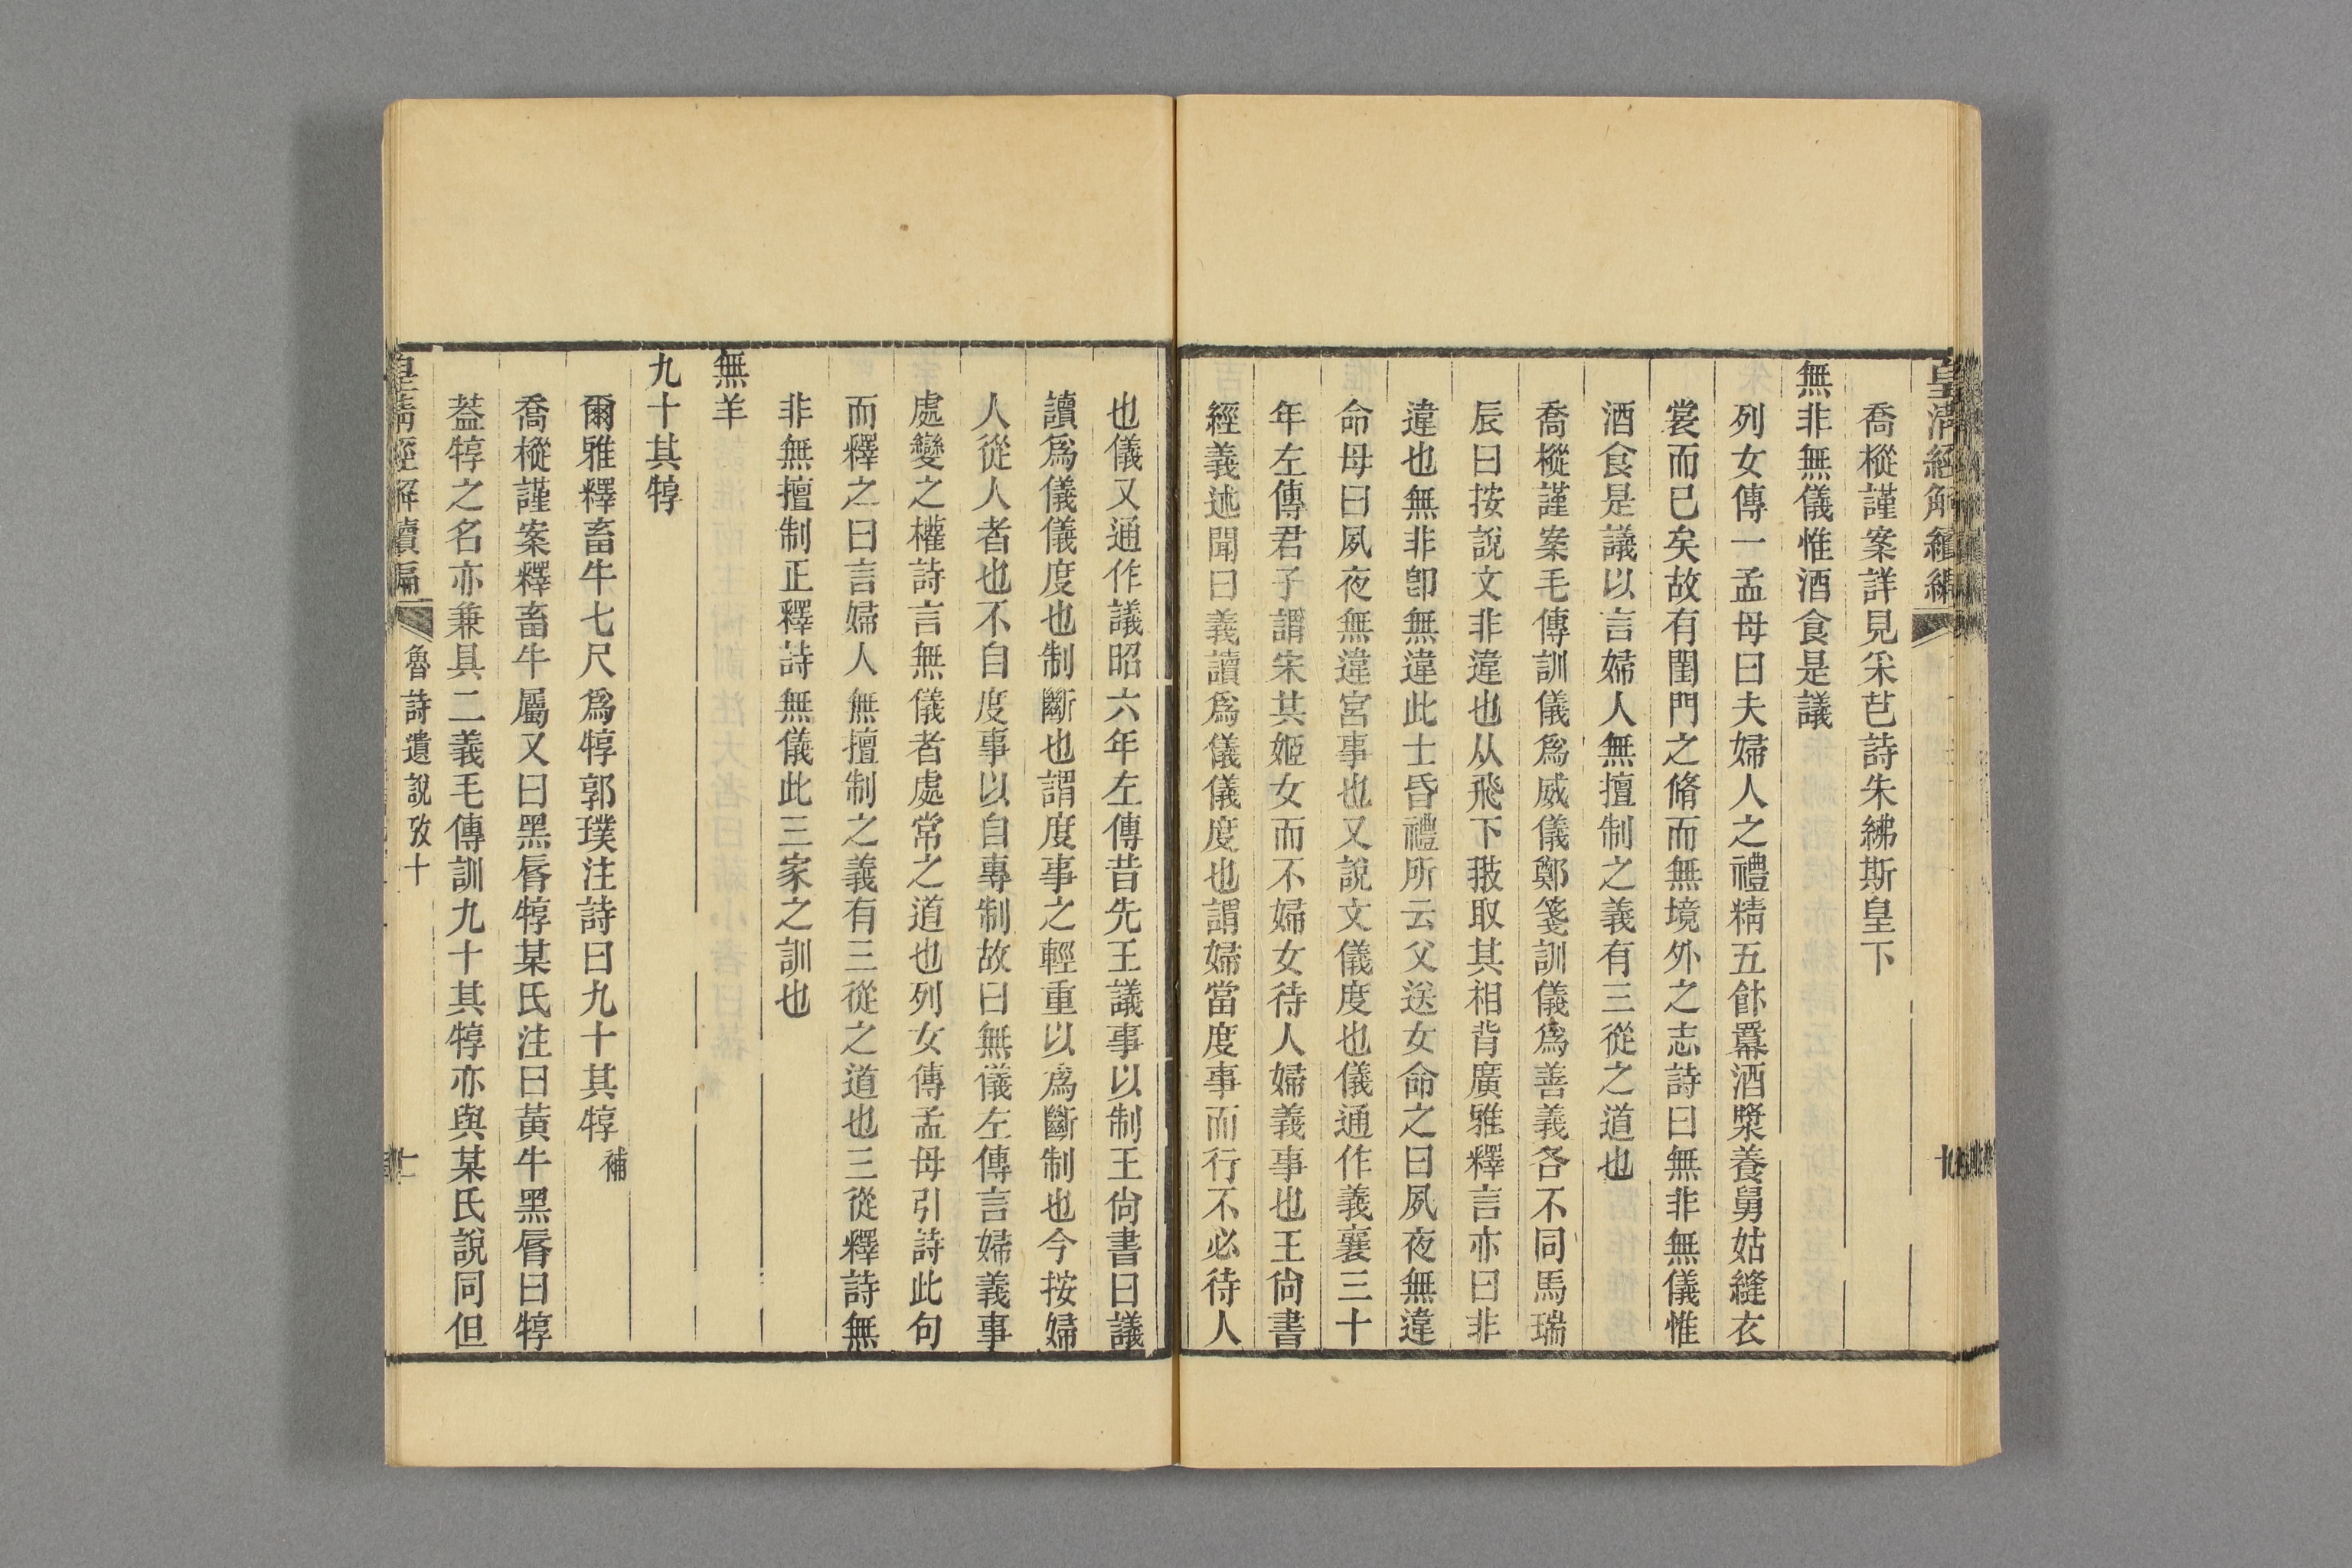 皇清經解續編
喬樅謹案詳見采芑詩朱紼斯皇下
無非無儀惟酒食是議
列女傳一孟母曰夫婦人之禮精五飰羃酒漿養舅姑縫衣
裳而已矣故有閨門之脩而無境外之志詩曰無非無儀惟
酒食是議以言婦人無擅制之義有三從之道也
喬樅謹案毛傳訓儀爲威儀鄭箋訓儀爲善義各不同馬瑞
辰曰按說文非違也从飛下翄取其相背廣雅釋言亦曰非
違也無非卽無違此士昏禮所云父送女命之曰夙夜無違
命母曰夙夜無違宮事也又說文儀度也儀通作義襄三十
年左傳君子謂宋共姬女而不婦女待人婦義事也王尙書
經義述聞曰義讀爲儀儀度也謂婦當度事而行不必待人
也儀又通作議昭六年左傳昔先王議事以制王尙書曰議
讀爲儀儀度也制斷也謂度事之輕重以爲斷制也今按婦
人從人者也不自度事以自專制故曰無儀左傳言婦義事
處變之權詩言無儀者處常之道也列女傳孟母引詩此句
而釋之曰言婦人無擅制之義有三從之道也三從釋詩無
非無擅制正釋詩無儀此三家之訓也
無羊
九十其犉
爾雅釋畜牛七尺爲犉郭璞注詩曰九十其犉補
喬樅謹案釋畜牛屬又曰黑脣犉某氏注曰黃牛黑脣曰犉
葢犉之名亦兼具二義毛傳訓九十其犉亦與某氏說同但
皇清經解續編 魯詩遺說攷十